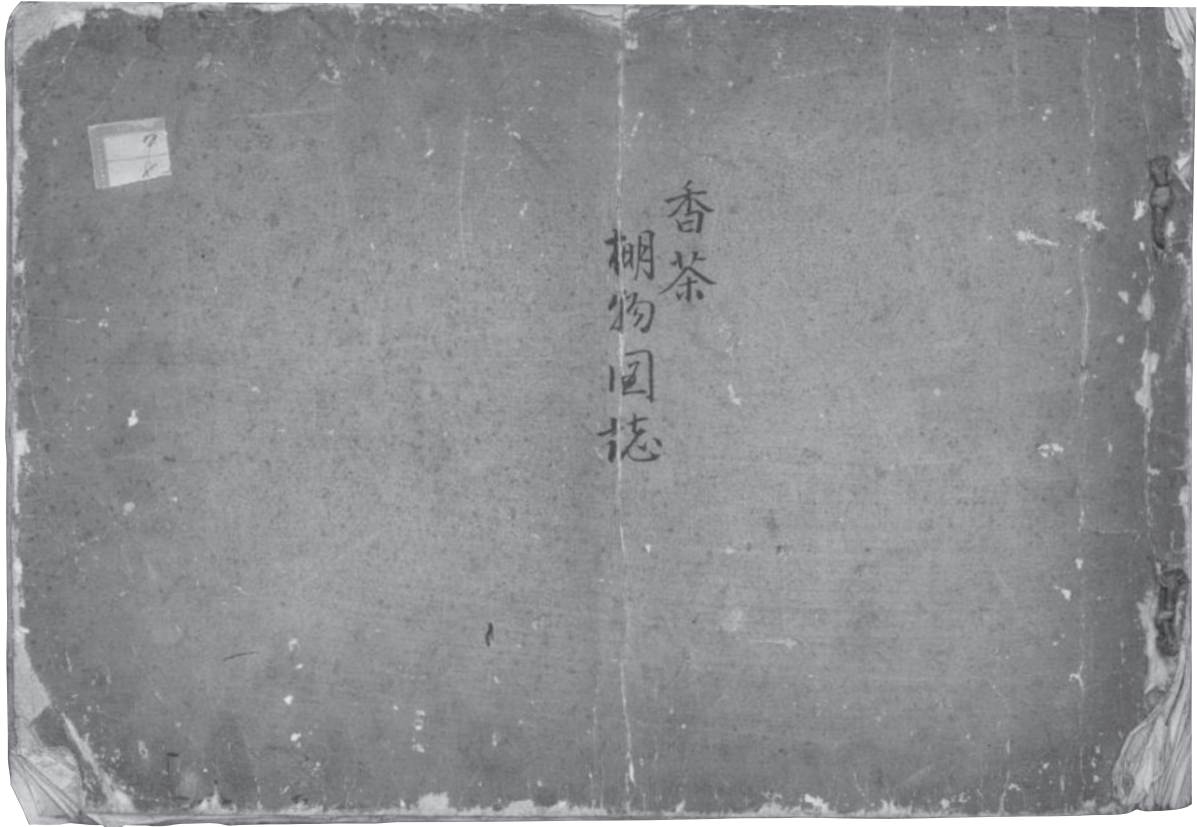 香茶
棚物圖誌